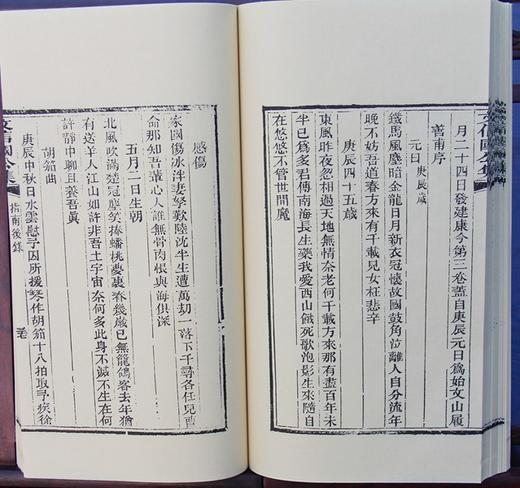 月二十四日發建康今第三卷蓋自庚辰元日爲始文山履
善甫序
元日 庚辰歲
鐵馬風塵暗金龍日月新衣冠懷故國鼓角泣離人自分流年
晚不妨吾道春方來有千載兒女枉悲辛
庚辰四十五歲
東風昨夜忽相過天地無情奈老何千載方來那有盡百年未
半已爲多君傅南海長生藥我愛西山餓死歌泡影生來隨自
在悠悠不管世間魔
感傷
家國傷冰泮妻孥歎陸沈半生遭萬劫一落下千尋各任兒曹
命那知吾輩心人誰無骨肉恨與海俱深
五月二日生朝
北風吹滿楚冠塵笑捧蟠桃夢裏春幾歲已無籠鴿客去年猶
有送羊人江山如許非吾土宇宙奈何多此身不滅不生在何
許靜中聊且養吾眞
胡笳曲
庚辰中秋日水雲慰予囚所援琴作胡笳十八拍取予疾徐
文信國公集
指南後錄